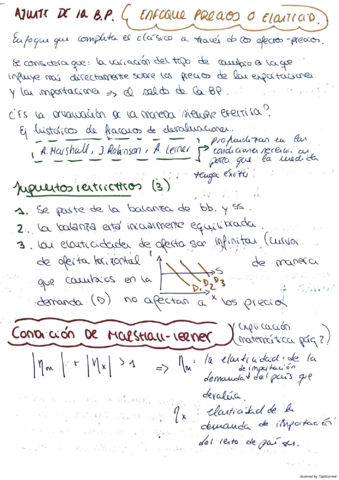 AJUSTE DE la B.P. (ENFOQUE PRECIOS O ELASTICID.
Enfoque que completa el clásico a través de los efectos-precios.
Se considera que: la variación del tipo de cambio es la que
influye más directamente sobre los precios de las exportaciones
y las importaciones => al saldo de la BP.
¿Es la devaluación de la moneda siempre efectiva?
Ej históricos de fracasos de devaluaciones.
A. Marshall, J. Robinson, A. Lerner
profundizan en las
condiciones necesarias
para que la medida
tenga éxito
Supuestos restrictivos (3)
1. Se parte de la balanza de bb. y ss.
2. La balanza está inicialmente equilibrada.
3. Las elasticidades de oferta son infinitas (curva
de oferta horizontal
S
D1 D2 D3
de manera
que cambios en la
demanda (D) no afectan a los precios
x
CONDICIÓN DE MARSHALL-LERNER
(Explicación
matemática pág 2)
|ηm| + |ηx| > 1 => ηm: la elasticidad de la
de importación
demanda del país que
devalúa.
ηx: elasticidad de la
demanda de importación
del resto de países.
Scanned by TapScanner